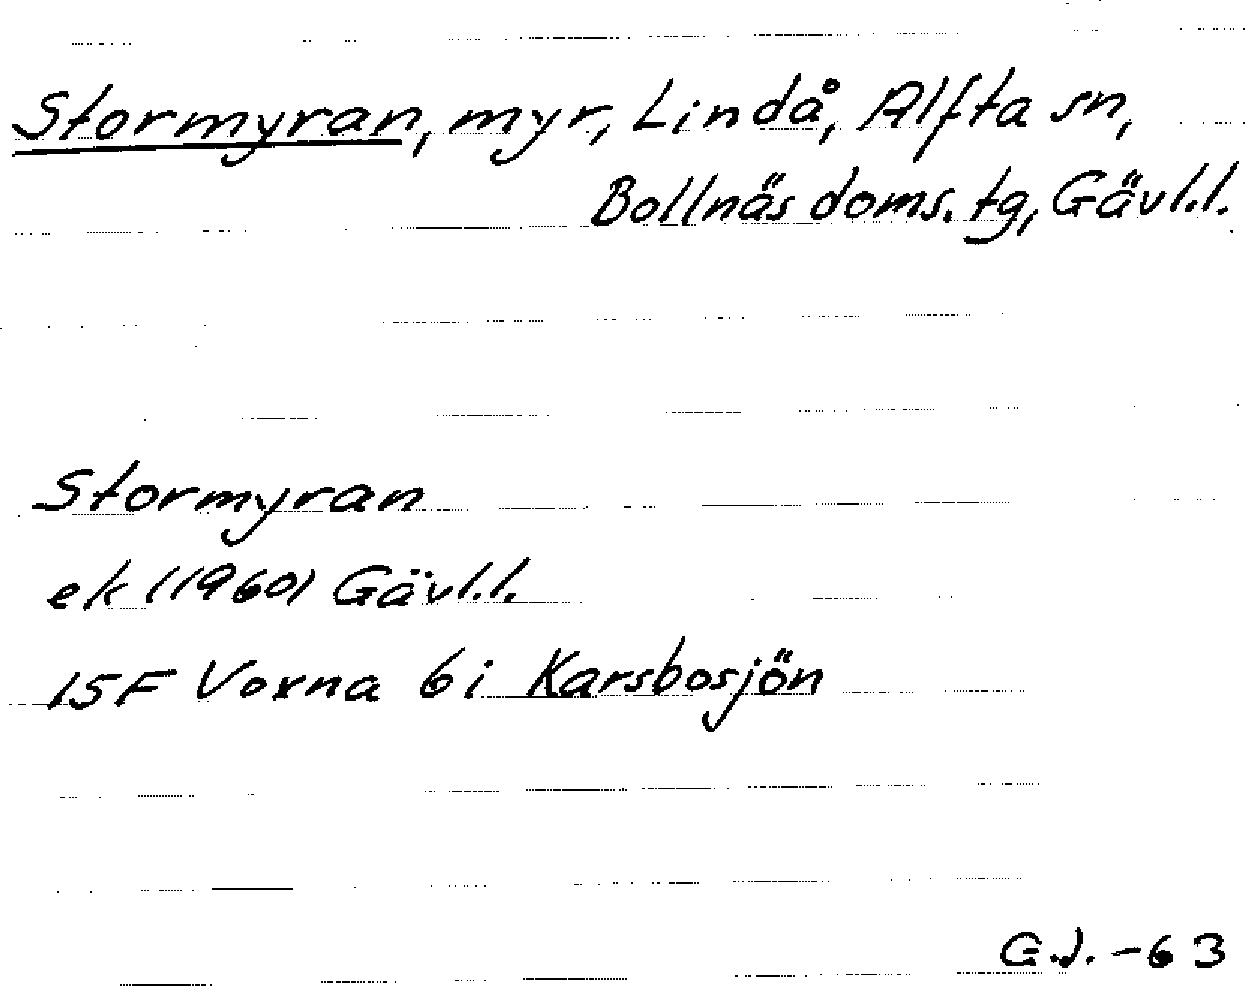 Stormyran, myr, Lindå, Alfta sn,
Bollnäs doms. tg, Gävl.l.
Stormyran
ek (1960) Gävl.l.
15F Voxna 6i Karsbosjön
G.J. -63